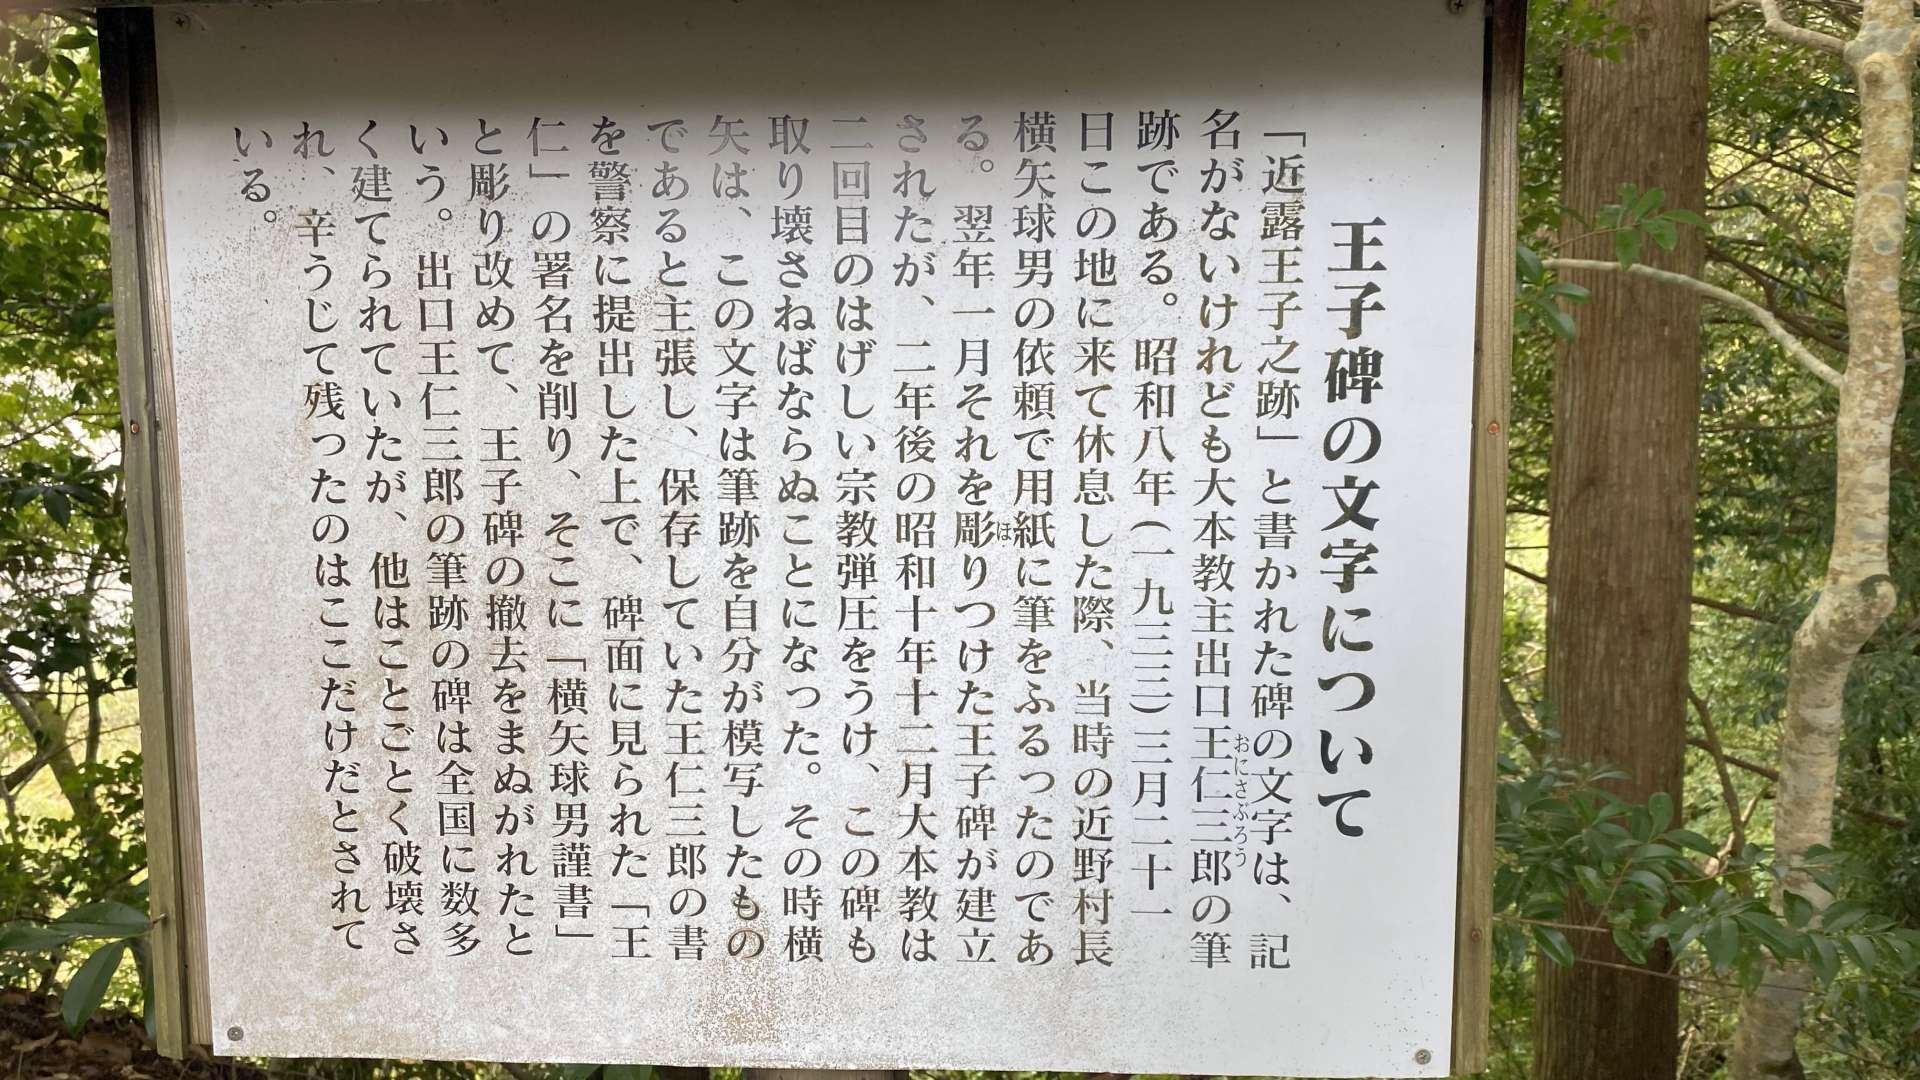 王子碑の文字について
「近露王子之跡」と書かれた碑の文字は、記
名がないけれども大本教主出口王仁三郎の筆
おにさぶろう
跡である。昭和八年(一九三三)三月二十一
日この地に来て休息した際、当時の近野村長
横矢球男の依頼で用紙に筆をふるったのであ
る。翌年一月それを彫りつけた王子碑が建立
ほ
されたが、二年後の昭和十年十二月大本教は
二回目のはげしい宗教弾圧をうけ、この碑も
取り壊さねばならぬことになった。その時横
矢は、この文字は筆跡を自分が模写したもの
であると主張し、保存していた王仁三郎の書
を警察に提出した上で、碑面に見られた「王
仁」の署名を削り、そこに「横矢球男謹書」
と彫り改めて、王子碑の撤去をまぬがれたと
いう。出口王仁三郎の筆跡の碑は全国に数多
く建てられていたが、他はことごとく破壊さ
れ、辛うじて残ったのはここだけだとされて
いる。